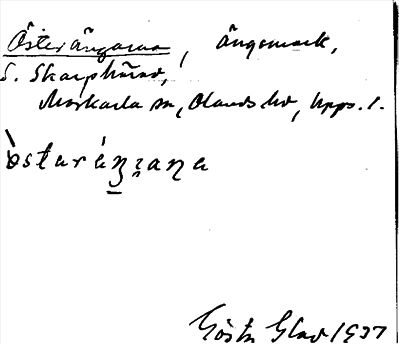 Österängarna, Ängsmark,
S. Skarphärad,
Morkarla sn, Olands hd, Upps. l.
òstaráŋɟ̣aṇa
Gösta Glad 1937